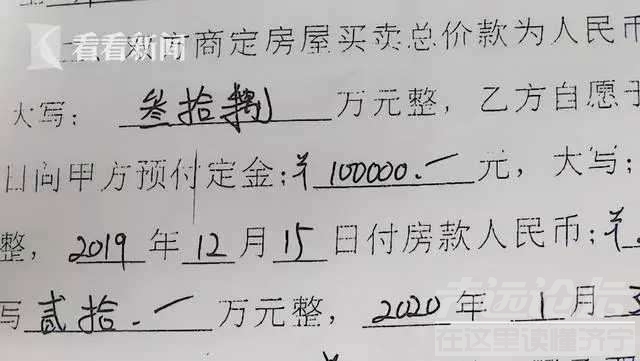 看看新闻
双方商定房屋买卖总价款为人民币
大写：叁拾捌万元整，乙方自愿于
日向甲方预付定金:¥100000.一元，大写；
整，2019年12月15日付房款人民币:¥
写贰拾.一万元整，2020年1月3
在这里读懂济宁